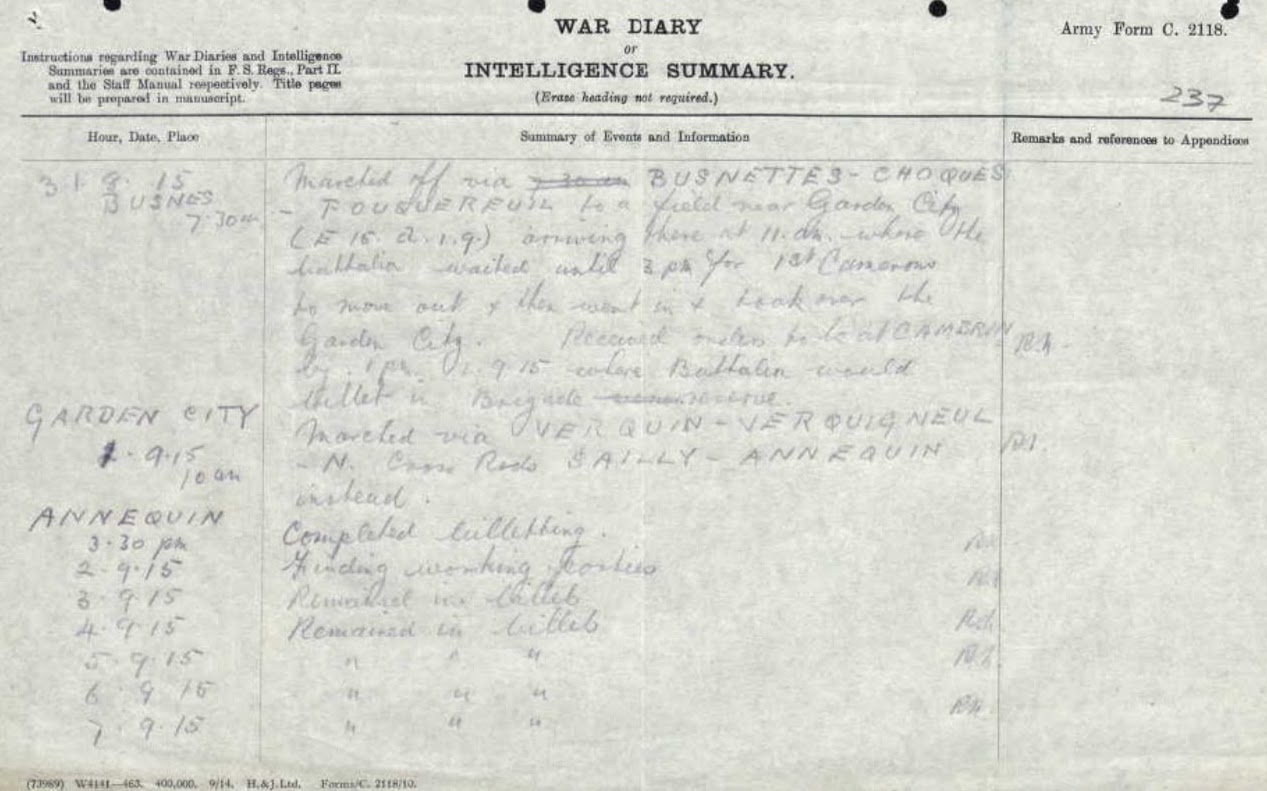 WAR DIARY
or
INTELLIGENCE SUMMARY.
(Erase heading not required.)
Army Form C. 2118.
Instructions regarding War Diaries and Intelligence
Summaries are contained in F. S. Regs., Part II.
and the Staff Manual respectively. Title pages
will be prepared in manuscript.
237
Hour, Date, Place
Summary of Events and Information
Remarks and references to Appendices
31. 8. 15
BUSNES
7.30am
Marched off via 7.30 am BUSNETTES - CHOQUES
- FOUQUEREUIL to a field near Garden City
(E 15. a. 1.9.) arriving there at 11. am. where the
battalion waited until 3 pm for 1st Camerons
to move out & then went in & took over the
Garden City. Received orders to be at CAMBRIN
by 1 pm. 1. 9 15 where Battalion would
billet in Brigade reserve.
GARDEN CITY
1. 9.15
10 am
Marched via VERQUIN - VERQUIGNEUL
- N. Cross Rds SAILLY - ANNEQUIN
instead.
ANNEQUIN
3.30 pm
Completed billetting.
2. 9. 15
Finding working parties
3. 9 15
Remained in billets
4. 9 15
Remained in billets
5. 9. 15
" " "
6. 9 15
" " "
7. 9. 15
" " "
(73989) W4141—463. 400,000. 9/14. H.&J.Ltd. Forms/C. 2118/10.